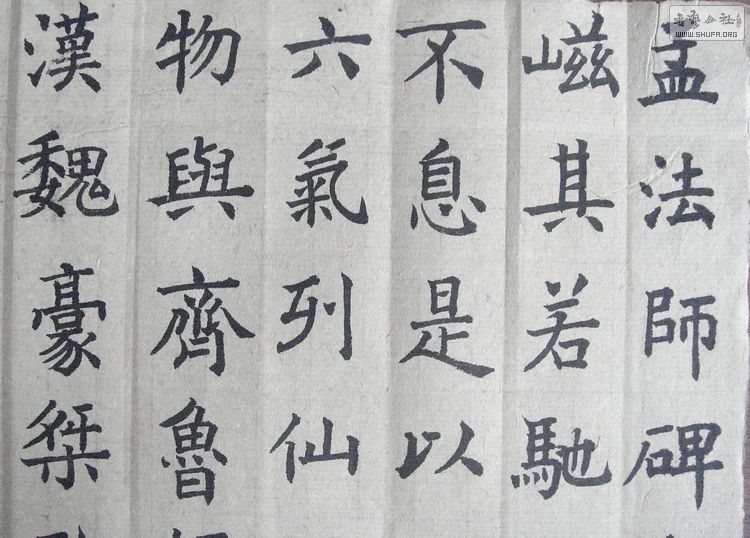 孟法師碑
嵫其若馳
不息是以
六氣列仙
物與齊魯
漢魏豪桀
WWW.SHUFA.ORG